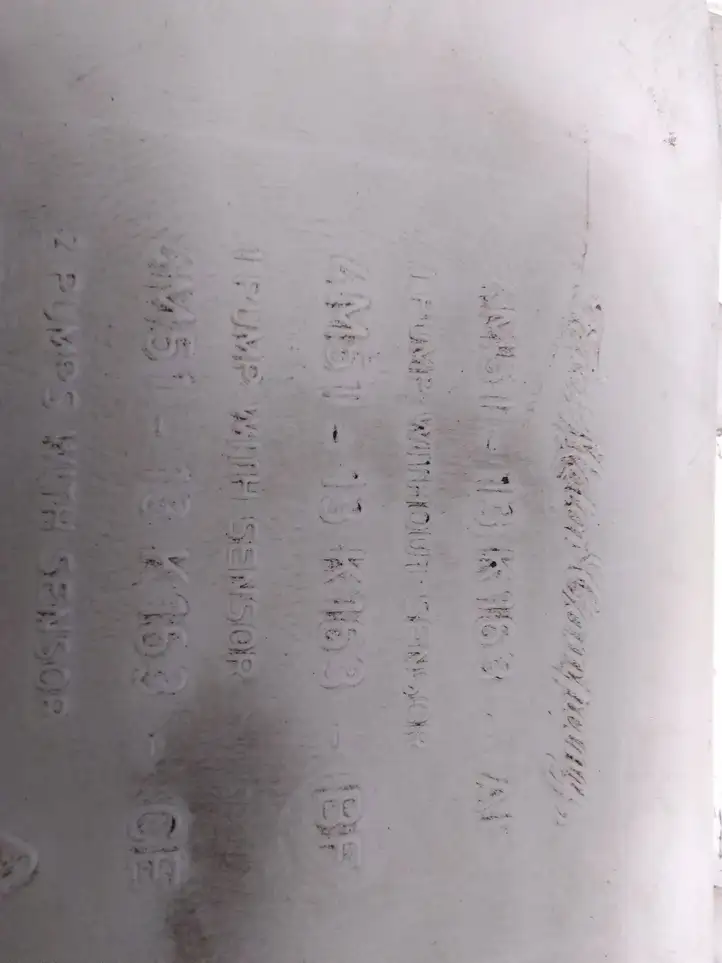 4M51-13K163-AF
1 PUMP WITHOUT SENSOR
4M51-13K163-BF
1 PUMP WITH SENSOR
4M51-13K163-CE
2 PUMPS WITH SENSOR